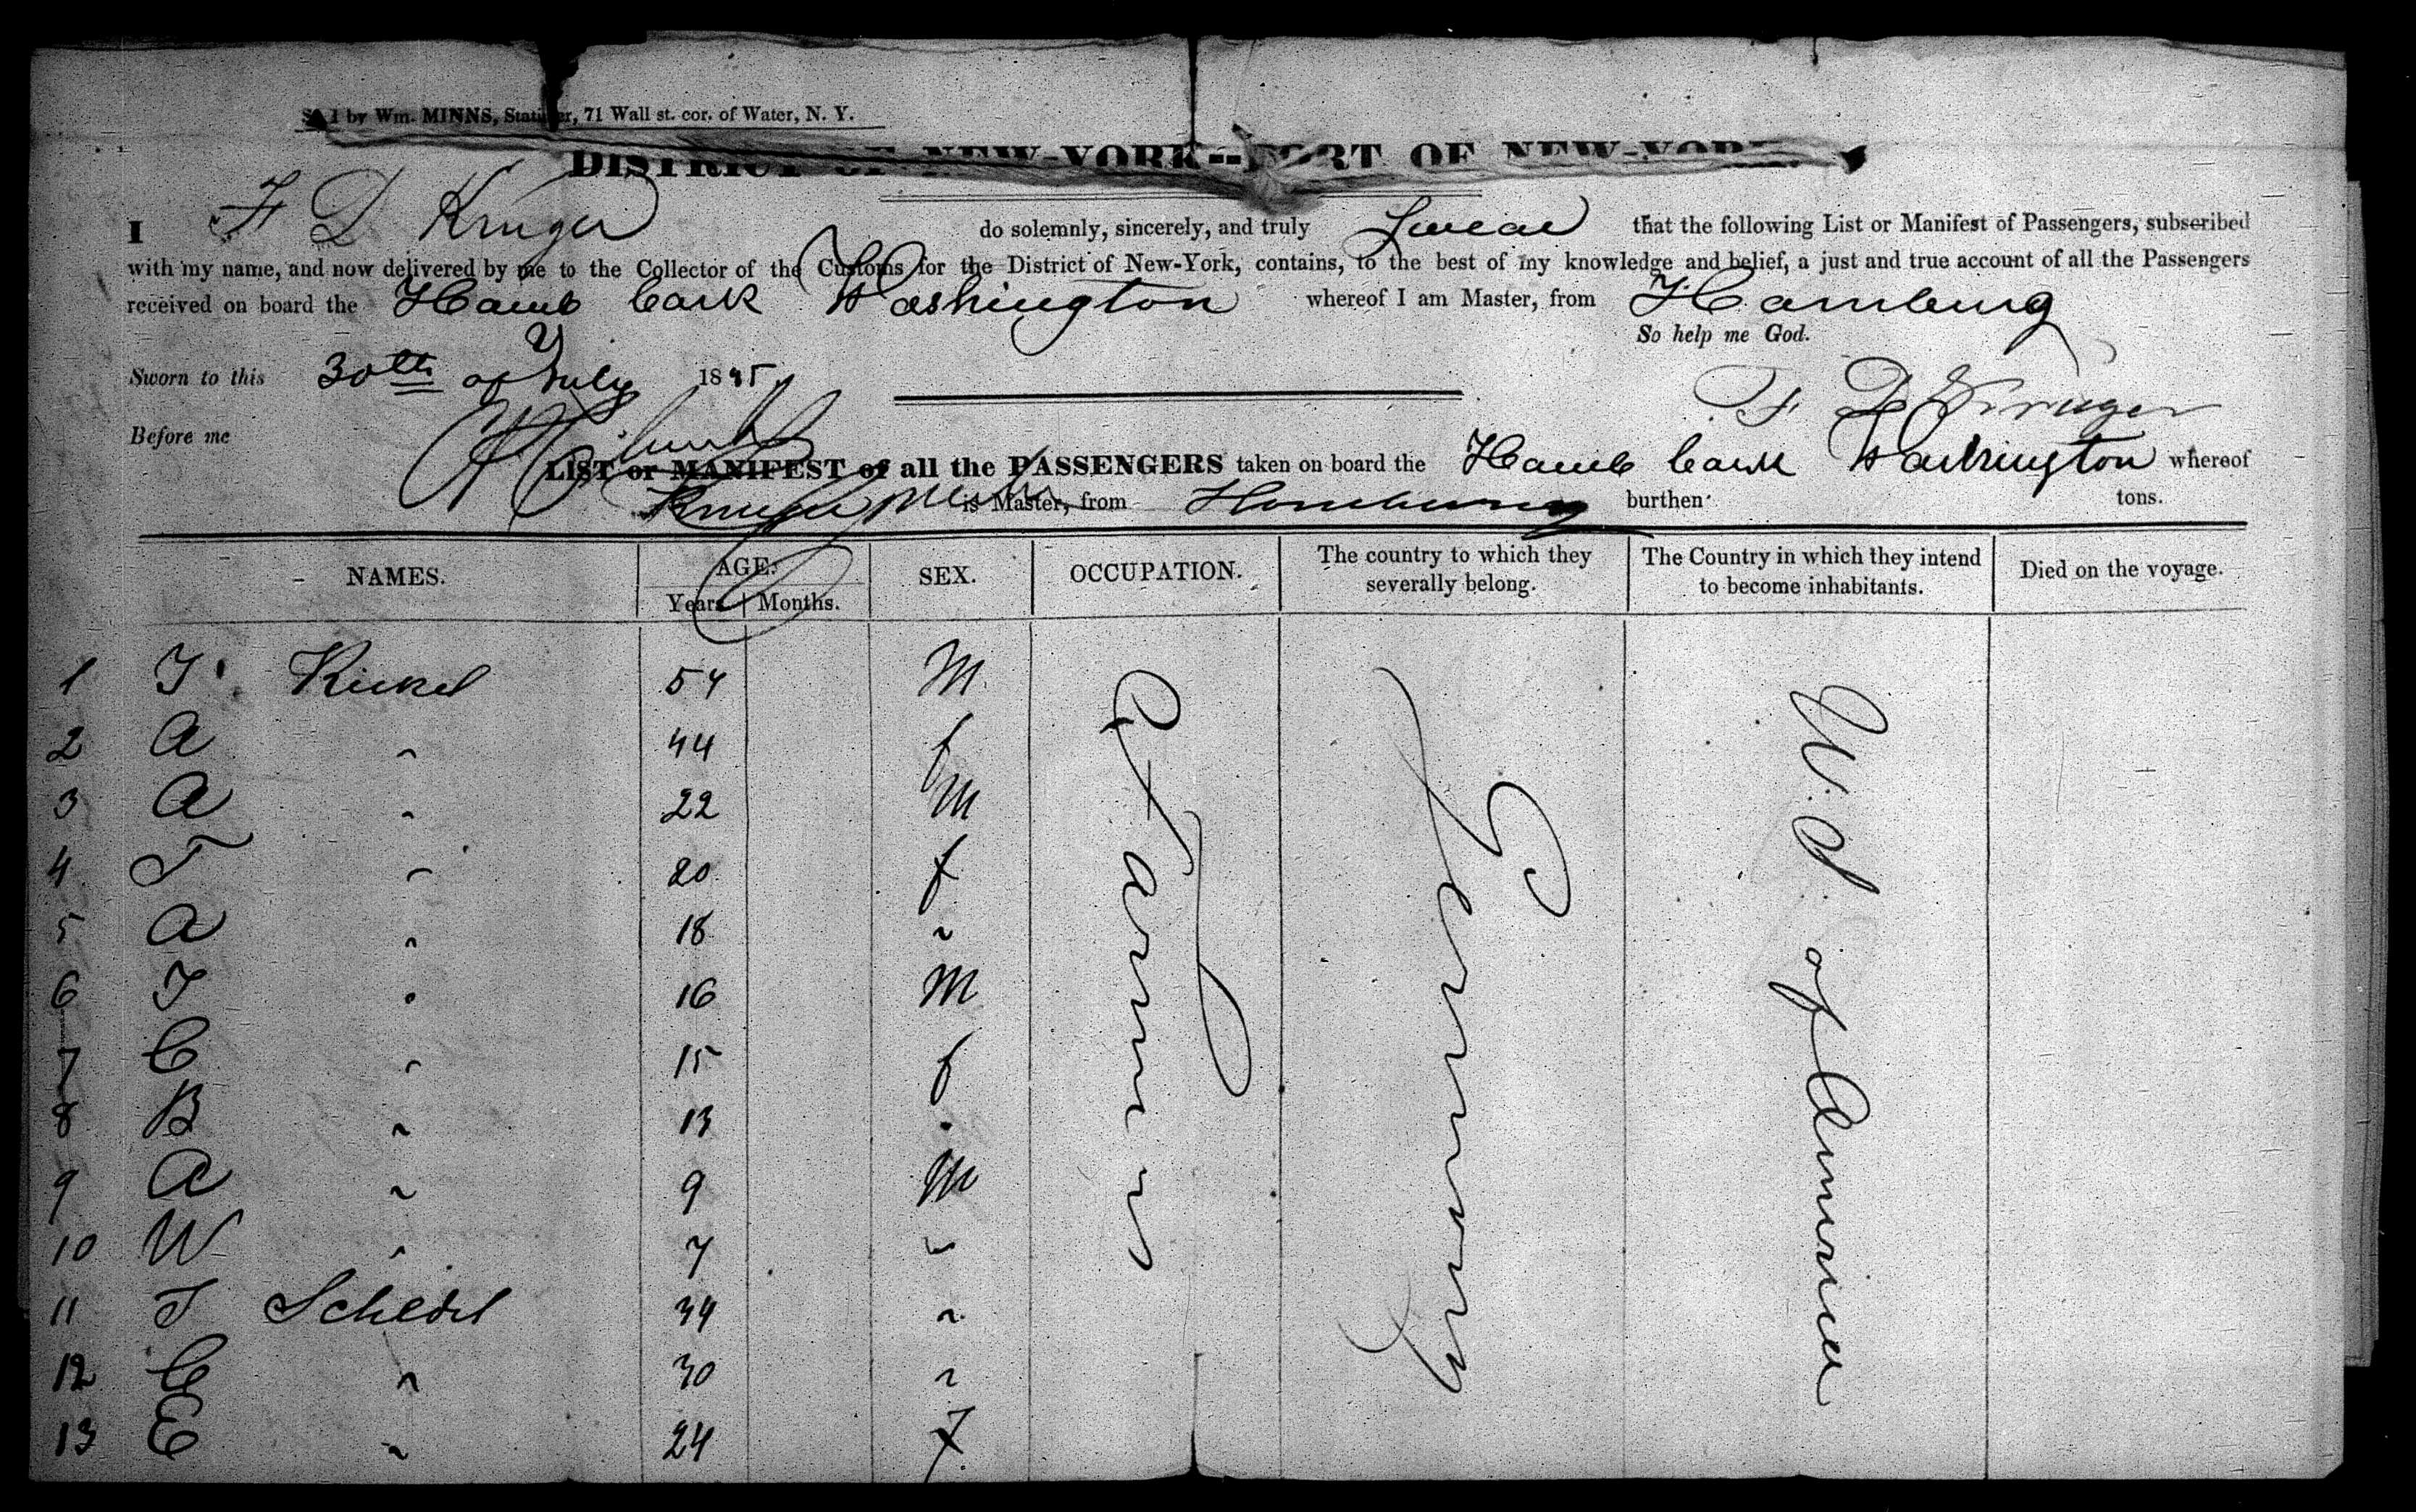 Sold by Wm. MINNS, Stationer, 71 Wall st. cor. of Water, N. Y.
DISTRICT OF NEW-YORK--PORT OF NEW-YORK
I F D Kruger do solemnly, sincerely, and truly Swear that the following List or Manifest of Passengers, subscribed
with my name, and now delivered by me to the Collector of the Customs for the District of New-York, contains, to the best of my knowledge and belief, a just and true account of all the Passengers
received on board the Hamb bark Washington whereof I am Master, from Hamburg
So help me God.
Sworn to this 30th of July 18
F D Kruger
Before me
LIST or MANIFEST of all the PASSENGERS taken on board the Hamb bark Washington whereof
Kruger is Master, from Hamburg burthen tons.
NAMES. AGE. SEX. OCCUPATION. The country to which they severally belong. The Country in which they intend to become inhabitants. Died on the voyage.
Years Months.
1 J. Kickel 54 M
2 A " 44 f
3 A " 22 M
4 T " 20 f
5 A " 18 "
6 J " 16 M
7 C " 15 f
8 B " 13 "
9 A " 9 M
10 W " 7 "
11 J Schedel 34 "
12 C " 30 "
13 E " 24 f
Farmers
Germany
U. S. of America